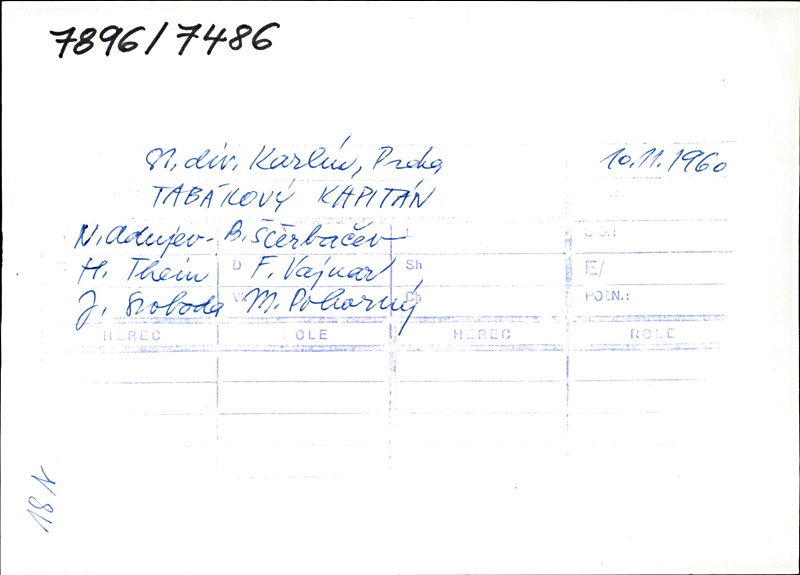 7896/7486
St. div. Karlín, Praha 10.11.1960
TABÁKOVÝ KAPITÁN
N. Adujev - B. Ščerbačev
H. Thein D F. Vajnar Sh E/
J. Svoboda M. Pokorný Ch POZN.:
HEREC ROLE HEREC ROLE
18 N